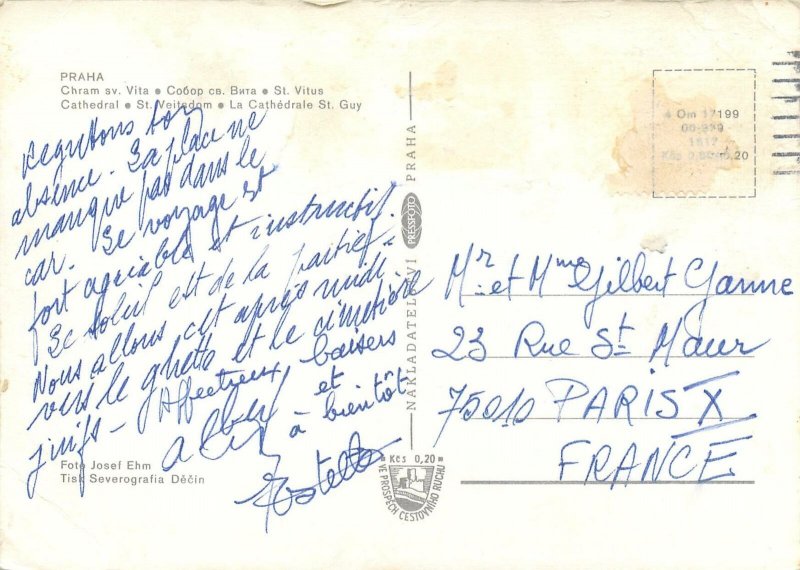 PRAHA
Chram sv. Vita • Собор св. Вита • St. Vitus
Cathedral • St. Veitsdom • La Cathédrale St. Guy
regrettons ton
absence. La place ne
manque pas dans le
car. Le voyage est
fort agréable et instructif.
Le soleil est de la partie.
Nous allons cet après midi
vers le ghetto et le cimetière
juifs - Affectueux baisers
et
à bientôt
Foto Josef Ehm
Tisk Severografia Děčín
NAKLADATELSTVÍ PRESSFOTO PRAHA
Kčs 0,20
VE PROSPĚCH CESTOVNÍHO RUCHU
4 Om 17199
Mr et Mme Gilbert Ganne
23 Rue St Maur
75010 PARIS X
FRANCE